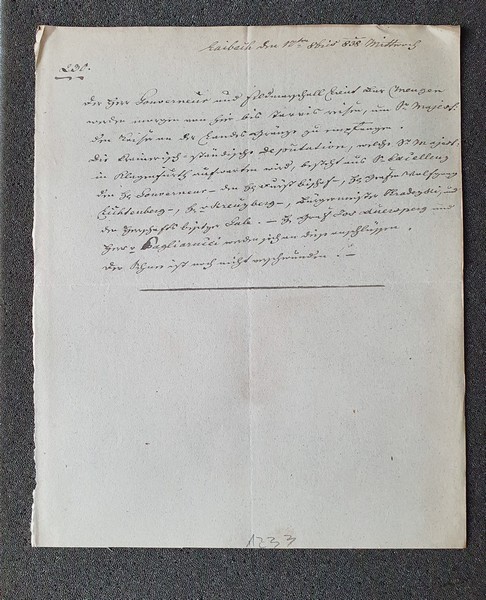 Laibach den 12ten 8bris 838 Mittwoch
230.
Der Herr Gouverneur und Feldmarschall Lieut
werden morgen von hier bis Tarvis reisen, um Se Majest.
den Kaiser an der Landesgränze zu empfangen.
Die Krainerisch-ständische Deputation, welche Sr Majest.
in Klagenfurth aufwarten wird, besteht aus Sr Excellenz
den H. Gouverneur – den H. Fürstbischof, H. Grafen Wolfgang
Lichtenberg, H. v Kreuzberg, Bürgermeister Hradezky, und
der Herrschafts besitzer – H. Graf Jos Auersperg und
Herr v Pagliaruzzi werden sich an diese anschliessen.
Der Schnee ist noch nicht verschwunden!–
1233